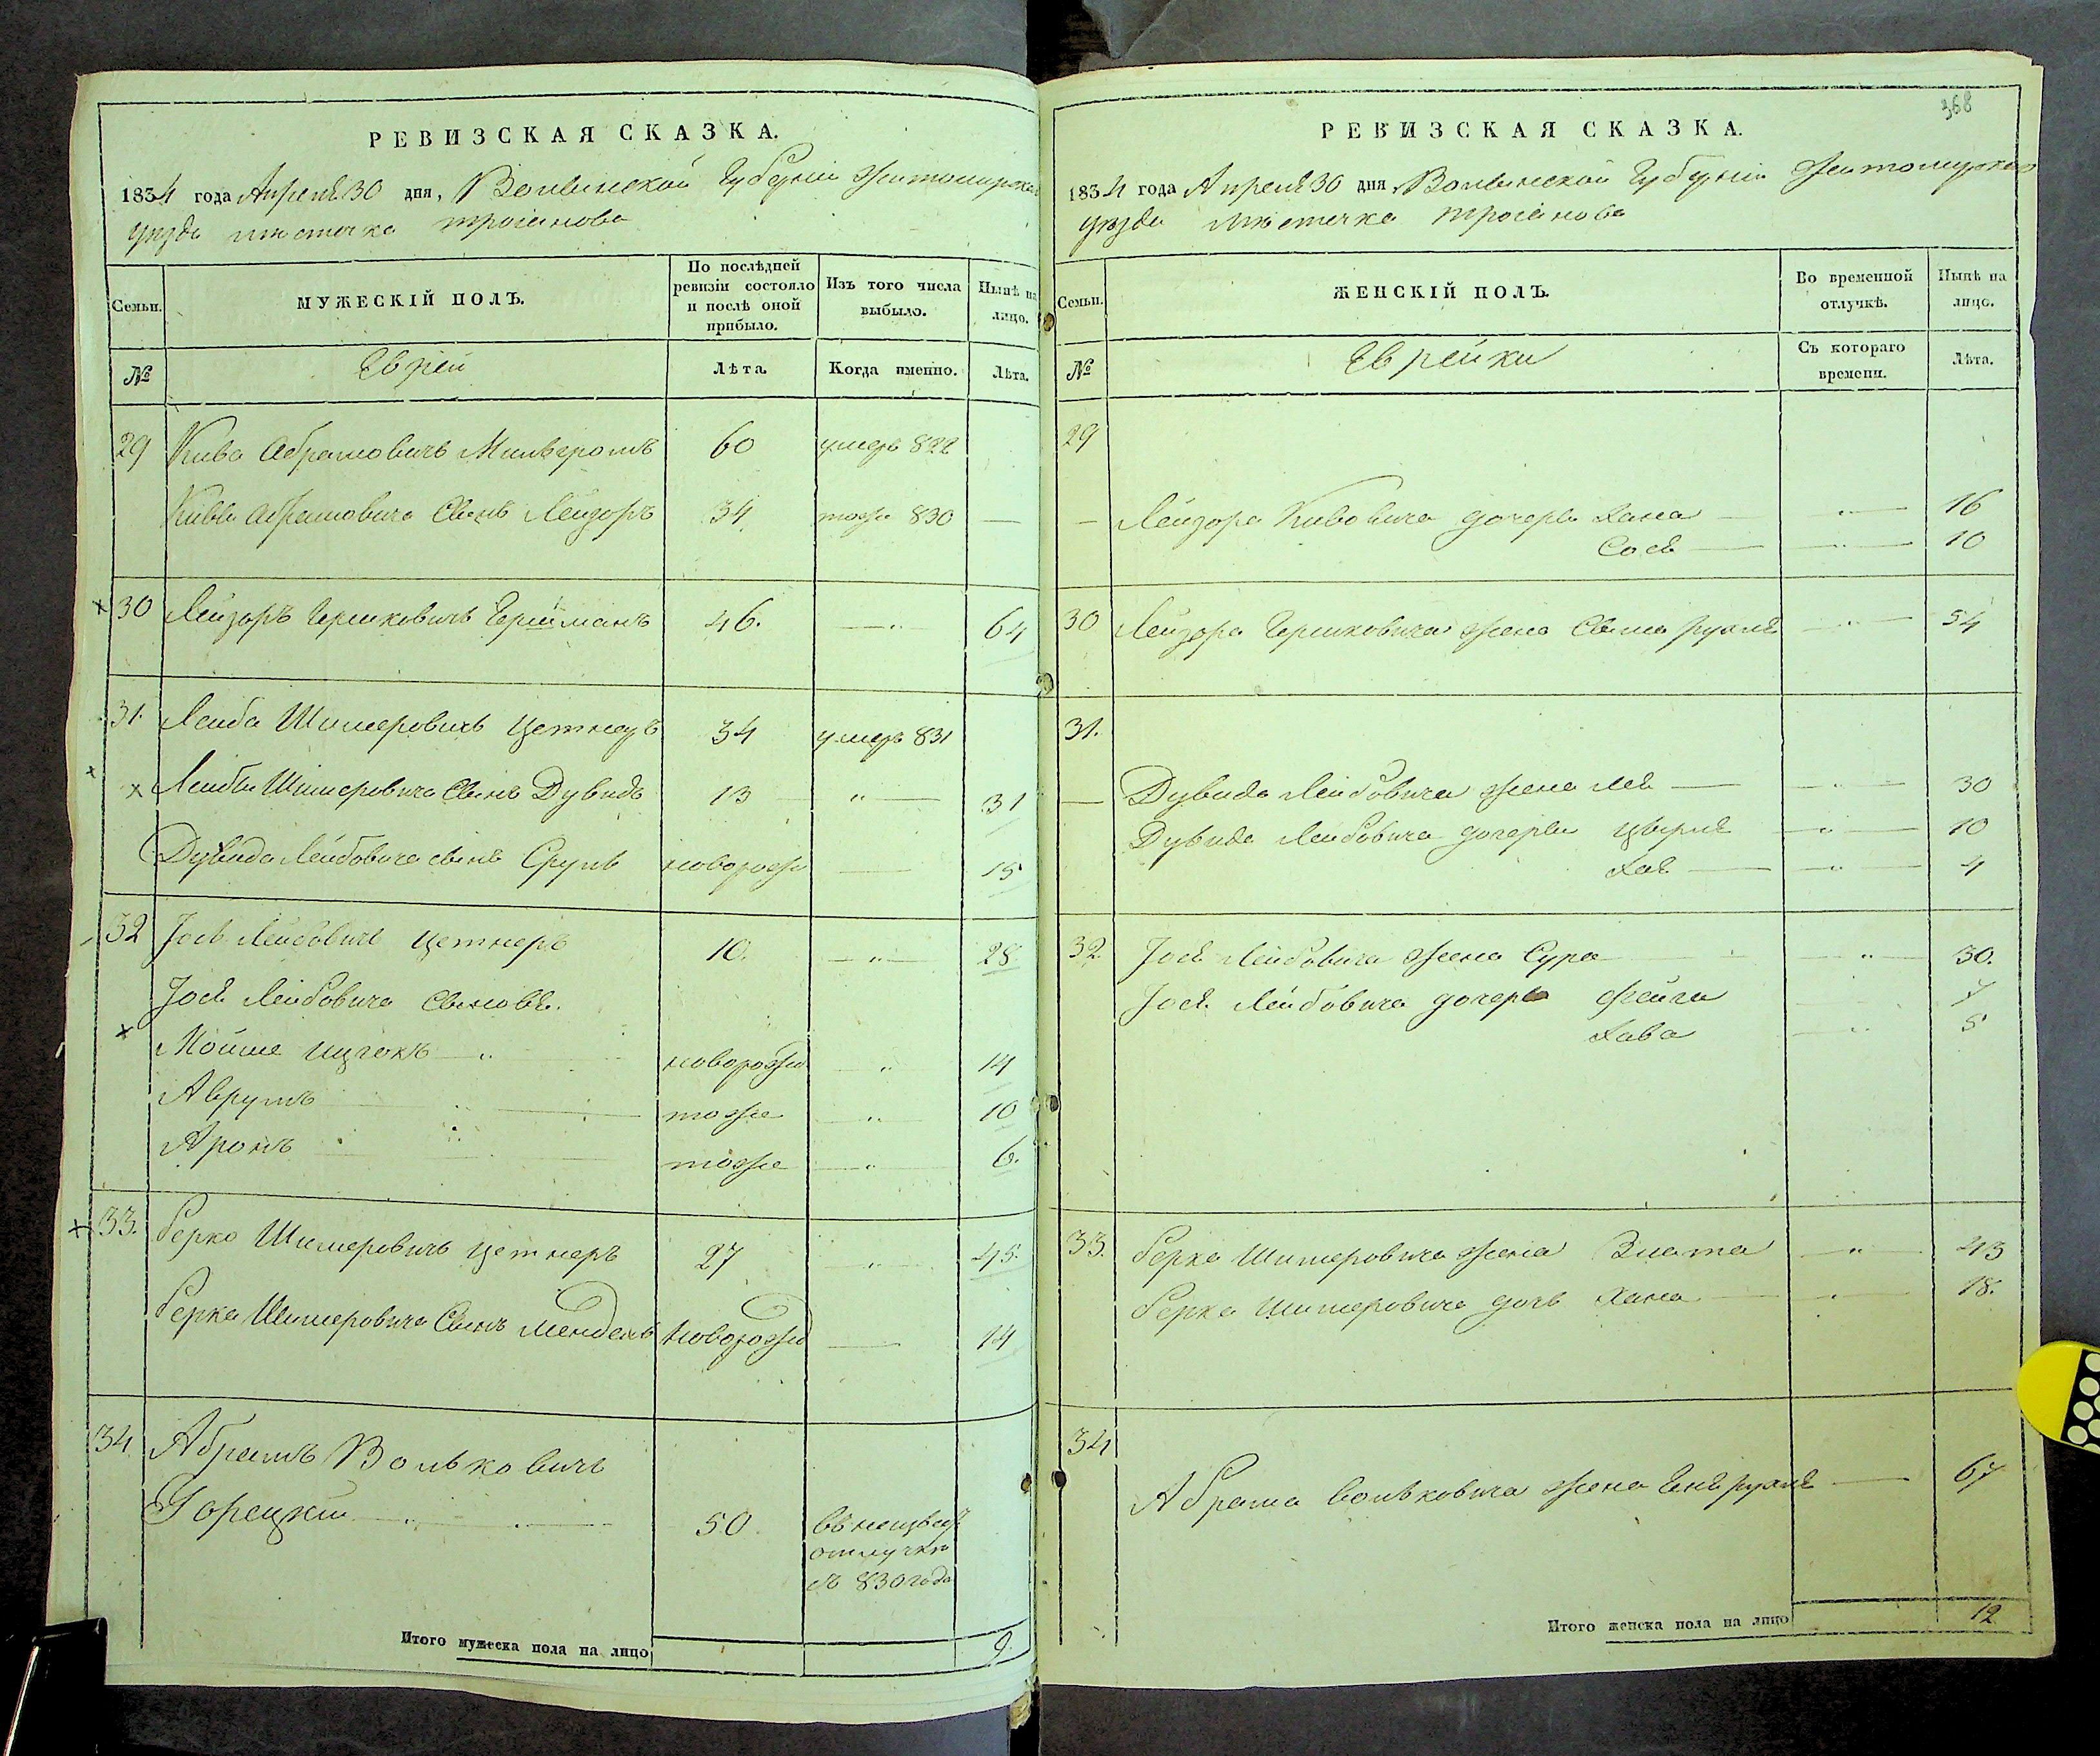 РЕВИЗСКАЯ СКАЗКА.
1834 года Апреля 30 дня, Волынской Губерніи Житомирскаго
уѣзда мѣстечка Троянова
Семьи. МУЖЕСКІЙ ПОЛЪ. По послѣдней ревизіи состояло и послѣ оной прибыло. Изъ того числа выбыло. Нынѣ на лицо.
№ Еврей Лѣта. Когда именно. Лѣта.
29 Кива Абрамовичъ Мильгромъ 60 умеръ 822
Кивы Абрамовича Сынъ Лейзоръ 34 тоже 830
30 Лейзоръ Гершковичъ Гершманъ 46. 64
31. Лейба Шмеровичъ Цетнеръ 34 умеръ 831
Лейбы Шмеровича Сынъ Дувидъ 13 31
Дувида Лейбовича сынъ Сруль новорож 15
32 Іось Лейбовичъ Цетнеръ 10. 28
Іося Лейбовича Сыновья.
Мойше Ицгокъ новорож 14
Аврумъ тоже 10
Аронъ тоже 6.
33. Берко Шмеровичъ Цетнеръ 27 45.
Берка Шмеровича Сынъ Мендель новорож 14
34 Абрамъ Вольковичъ
Горецкій 50. въ неизвѣс
отлучкѣ
съ 830 года
Итого мужеска пола на лицо 9.
368
РЕВИЗСКАЯ СКАЗКА.
1834 года Апреля 30 дня Волынской Губерніи Житомирскаго
уѣзда мѣстечка Троянова
Семьи. ЖЕНСКІЙ ПОЛЪ. Во временной отлучкѣ. Нынѣ на лицо.
№ Еврейки Съ котораго времени. Лѣта.
29
Лейзора Кивовича дочери Хана 16
Сося 10
30 Лейзора Гершковича жена Сыма Рухля 54
31.
Дувида Лейбовича жена Лея 30
Дувида Лейбовича дочери Цырля 10
Хая 4
32. Іося Лейбовича жена Сура 30.
Іося Лейбовича дочери Фейга 7
Хава 5
33. Берка Шмеровича жена Злата 43
Берка Шмеровича дочь Хана 18.
34
Абрама Вольковича жена Еня Рухля 67
Итого женска пола на лицо 12